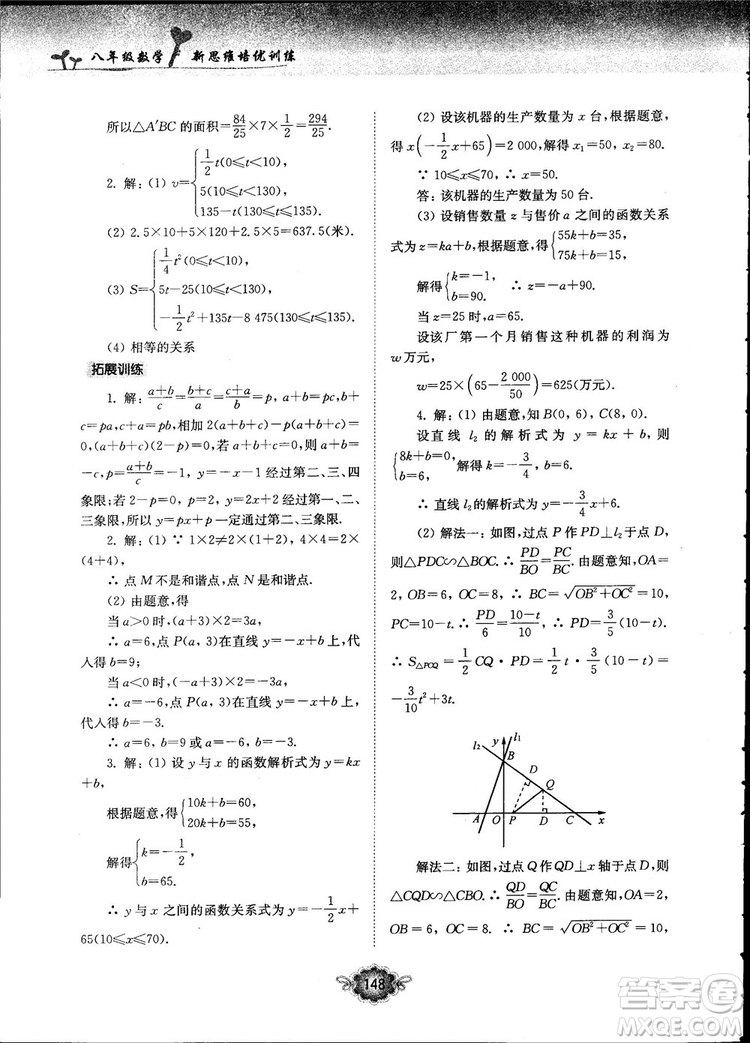 八年级数学 新思维培优训练
所以△A′BC 的面积=84/25×7×1/2=294/25.
2. 解：(1) v={1/2 t(0≤t<10)，
5(10≤t<130)，
135-t(130≤t≤135).
(2) 2.5×10+5×120+2.5×5=637.5(米).
(3) S={1/4 t²(0≤t<10)，
5t-25(10≤t<130)，
-1/2 t²+135t-8 475(130≤t≤135).
(4) 相等的关系
拓展训练
1. 解：(a+b)/c=(b+c)/a=(c+a)/b=p，a+b=pc，b+
c=pa，c+a=pb，相加得 2(a+b+c)-p(a+b+c)=
0，(a+b+c)(2-p)=0，若 a+b+c=0，则 a+b=
-c，p=(a+b)/c=-1，y=-x-1 经过第二、三、四
象限；若 2-p=0，p=2，y=2x+2 经过第一、二、
三象限，所以 y=px+p 一定经过第二、三象限.
2. 解：(1) ∵ 1×2≠2×(1+2)，4×4=2×
(4+4)，
∴ 点 M 不是和谐点，点 N 是和谐点.
(2) 由题意，得
当 a>0 时，(a+3)×2=3a，
∴ a=6，点 P(a，3)在直线 y=-x+b 上，代
入得 b=9；
当 a<0 时，(-a+3)×2=-3a，
∴ a=-6，点 P(a，3)在直线 y=-x+b 上，
代入得 b=-3.
∴ a=6，b=9 或 a=-6，b=-3.
3. 解：(1) 设 y 与 x 的函数解析式为 y=kx
+b，
根据题意，得{10k+b=60，
20k+b=55，
解得{k=-1/2，
b=65.
∴ y 与 x 之间的函数关系式为 y=-1/2 x+
65(10≤x≤70).
(2) 设该机器的生产数量为 x 台，根据题意，
得 x(-1/2 x+65)=2 000，解得 x₁=50，x₂=80.
∵ 10≤x≤70，∴ x=50.
答：该机器的生产数量为 50 台.
(3) 设销售数量 z 与售价 a 之间的函数关系
式为 z=ka+b，根据题意，得{55k+b=35，
75k+b=15，
解得{k=-1，
b=90.
∴ z=-a+90.
当 z=25 时，a=65.
设该厂第一个月销售这种机器的利润为
w 万元，
w=25×(65-2 000/50)=625(万元).
4. 解：(1) 由题意，知 B(0，6)，C(8，0).
设直线 l₂ 的解析式为 y=kx+b，则
{8k+b=0，
b=6，
解得 k=-3/4，b=6.
∴ 直线 l₂的解析式为 y=-3/4 x+6.
(2) 解法一：如图，过点 P 作 PD⊥l₂于点 D，
则△PDC∽△BOC. ∴ PD/BO=PC/BC. 由题意知，OA=
2，OB=6，OC=8，∴ BC=√(OB²+OC²)=10，
PC=10-t. ∴ PD/6=(10-t)/10，∴ PD=3/5(10-t).
∴ S△PCQ=1/2 CQ·PD=1/2 t·3/5(10-t)=
-3/10 t²+3t.
l₂ y l₁
B
D
Q
A O P D C x
解法二：如图，过点 Q 作 QD⊥x 轴于点 D，则
△CQD∽△CBO. ∴ QD/BO=QC/BC. 由题意知，OA=2，
OB=6，OC=8. ∴ BC=√(OB²+OC²)=10，
148
答案卷